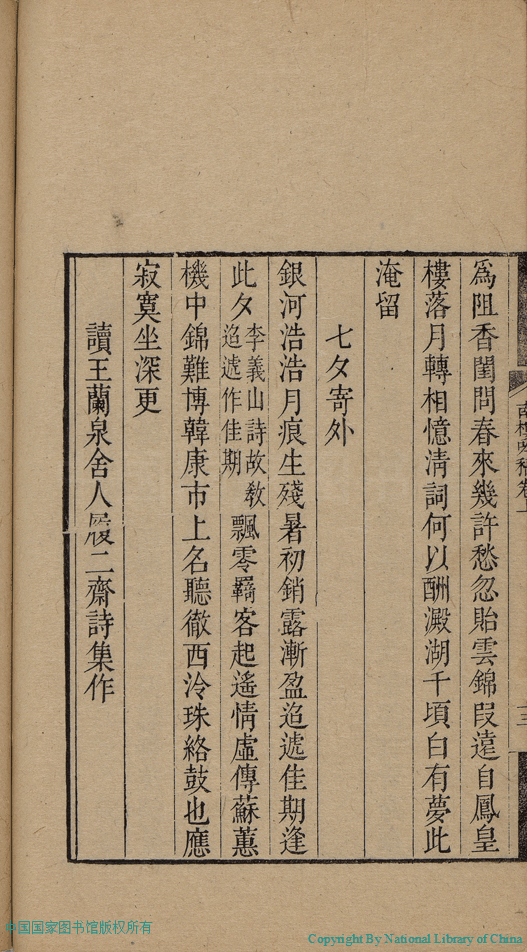 為阻香閨問春來幾許愁忽貽雲錦段遠自鳳皇
樓落月轉相憶清詞何以酬澱湖千頃白有夢此
淹留
七夕寄外
銀河浩浩月痕生殘暑初銷露漸盈迨遞佳期逢
此夕李義山詩故教迨遞作佳期飄零羇客起遙情虛傳蘇蕙
機中錦難博韓康市上名聽徹西泠珠絡鼓也應
寂寞坐深更
讀王蘭泉舍人履二齋詩集作
中国国家图书馆版权所有
Copyright By National Library of China